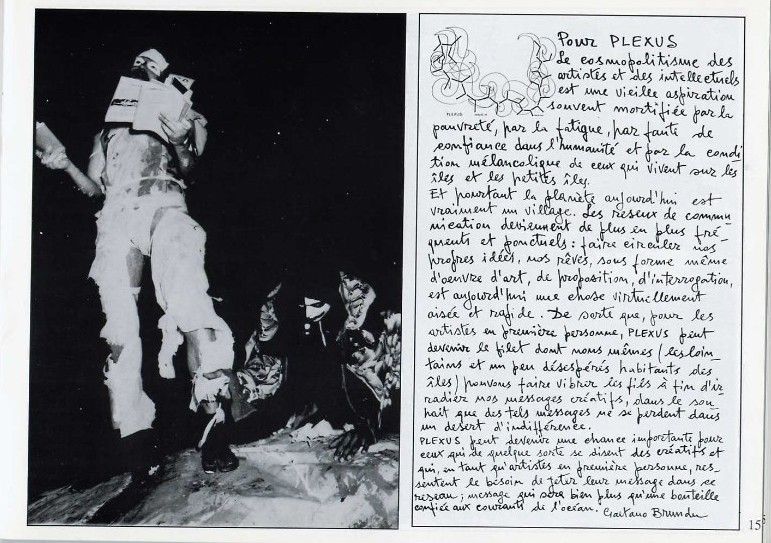 Pour PLEXUS
Le cosmopolitisme des
artistes et des intellectuels
est une vieille aspiration
souvent mortifiée par la
pauvreté, par la fatigue, par faute de
confiance dans l'humanité et par la condi
tion mélancolique de ceux qui vivent sur les
îles et les petites îles.
Et pourtant la planète aujourd'hui est
vraiment un village. Les reseux de commu-
nication deviennent de plus en plus fré-
quents et ponctuels: faire circuler nos
propres idées, nos rêves, sous forme même
d'oeuvre d'art, de proposition, d'interrogation,
est aujourd'hui une chose virtuellement
aisée et rapide. De sorte que, pour les
artistes en première personne, PLEXUS peut
devenir le filet dont nous mêmes (les loin-
tains et un peu désespérés habitants des
îles) pouvons faire vibrer les fiés à fin d'ir
radier nos messages créatifs, dans le sou-
hait que des tels messages ne se perdent dans
un desert d'indifférence.
PLEXUS peut devenir une chance importante pour
ceux qui de quelque sorte se disent des créatifs et
qui, en tant qu'artistes en première personne, res-
sentent le besoin de jeter leur message dans ce
reseau; message qui sera bien plus qu'une bouteille
confiée aux courants de l'océan. Gaetano Brundu
PLEXUS
15